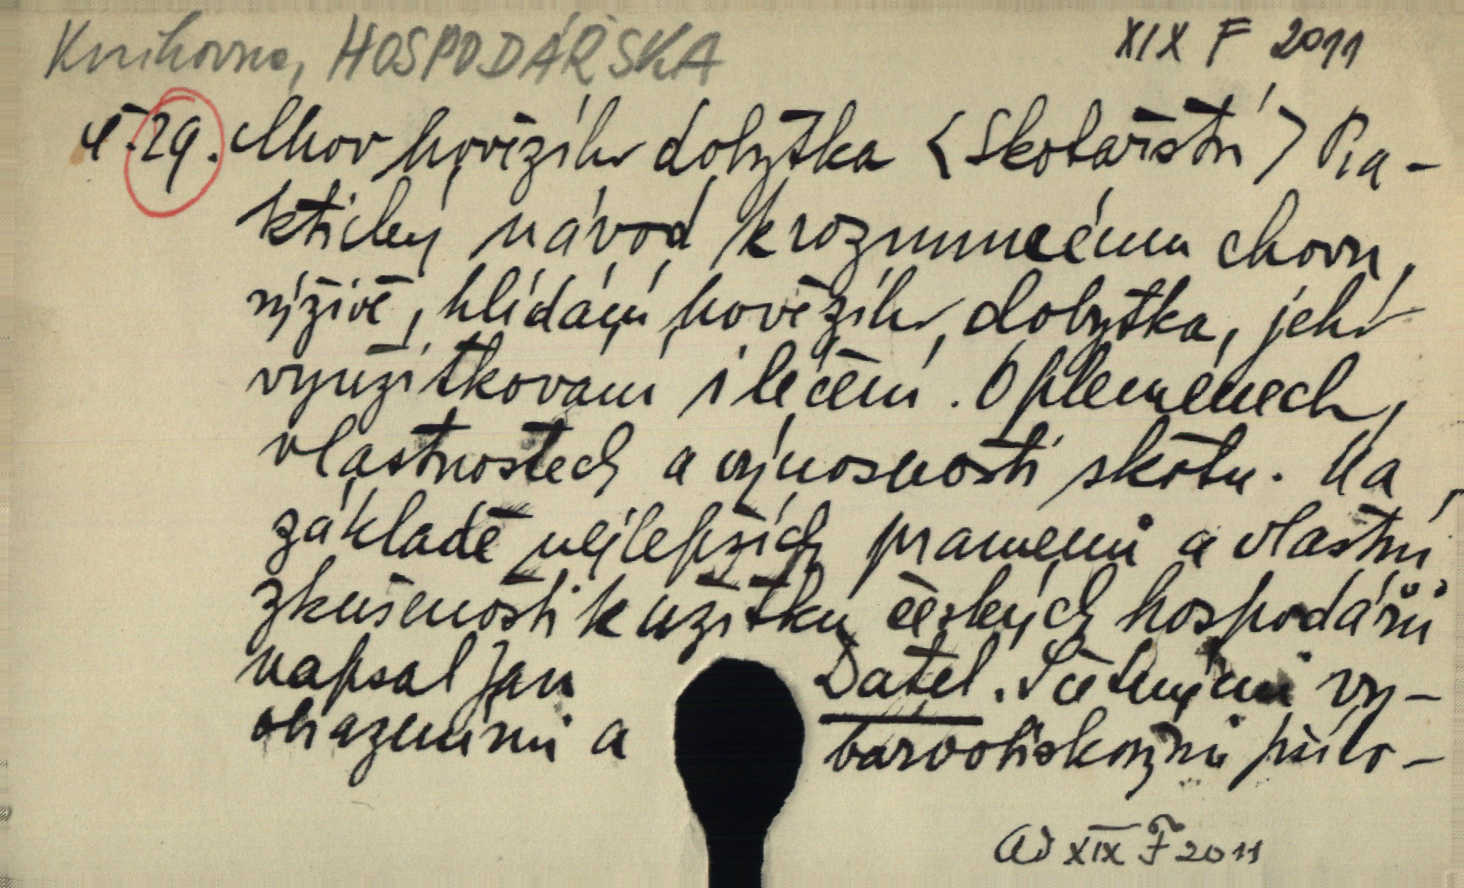 Knihovna, HOSPODÁŘSKA
XIX F 2011
č. 29. Chov hovězího dobytka <Skotařství> Pra-
ktický návod k rozumnému chovu,
výživě, hlídání hovězího dobytka, jeho
využitkování i léčení. O plemenech,
vlastnostech a výnosnosti skotu. Na
základě nejlepších pramenů a vlastní
zkušenosti k užitku českých hospodářů
napsal Jan Datel. S četnými vy-
obrazeními a barvotiskovými přílo-
Ad XIX F 2011